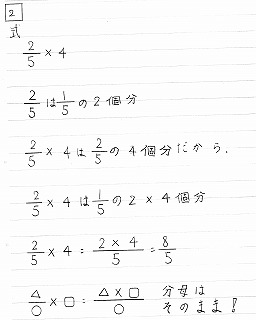 2
式
2/5 × 4
2/5は1/5の2個分
2/5 × 4は2/5の4個分だから、
2/5 × 4は1/5の2 × 4個分
2/5 × 4 = (2 × 4)/5 = 8/5
△/○ × □ = (△ × □)/○ 分母はそのまま!